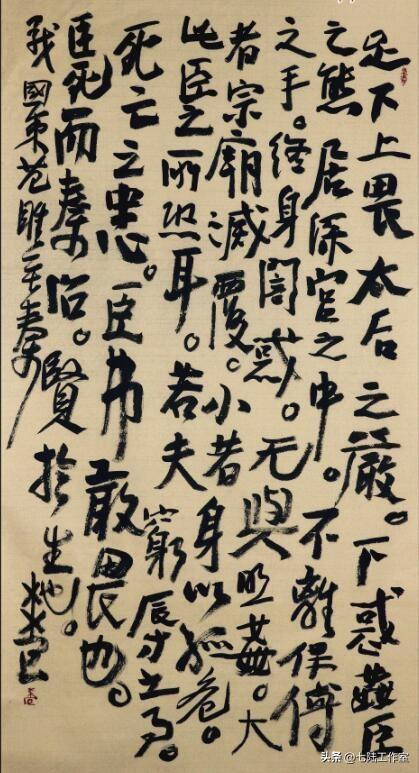 足下上畏太后之嚴。下惑姦臣
之態居深宮之中。不離保傅
之手。終身闇惑。无與昭姦。大
者宗廟滅覆。小者身以孤危。
此臣之所恐耳。若夫窮辱之事。
死亡之患。臣弗敢畏也。
臣死而秦治。賢於生也。
戰國策范雎至秦
头条 @七陆工作室